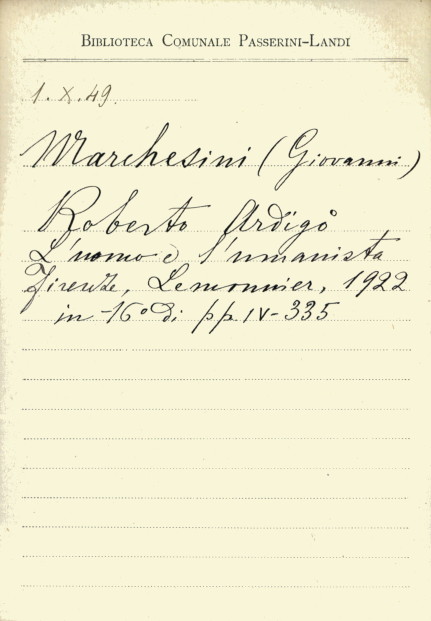 BIBLIOTECA COMUNALE PASSERINI-LANDI
1. X. 49
Marchesini (Giovanni)
Roberto Ardigò
L'uomo e l'umanista
Firenze, Lemonnier, 1922
in-16° di pp IV-335